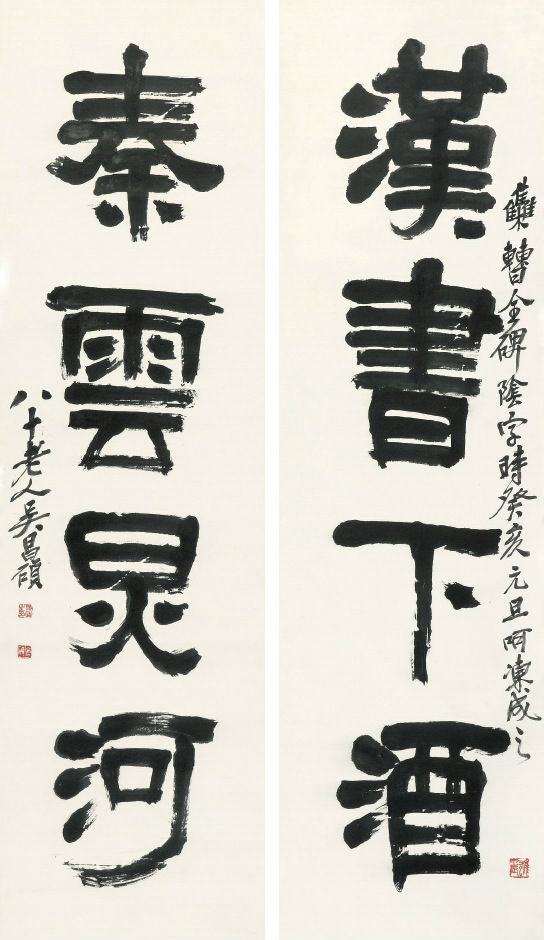 漢書下酒
雧曹全碑陰字時癸亥元旦呵凍成之
秦雲炅河
八十老人吳昌碩